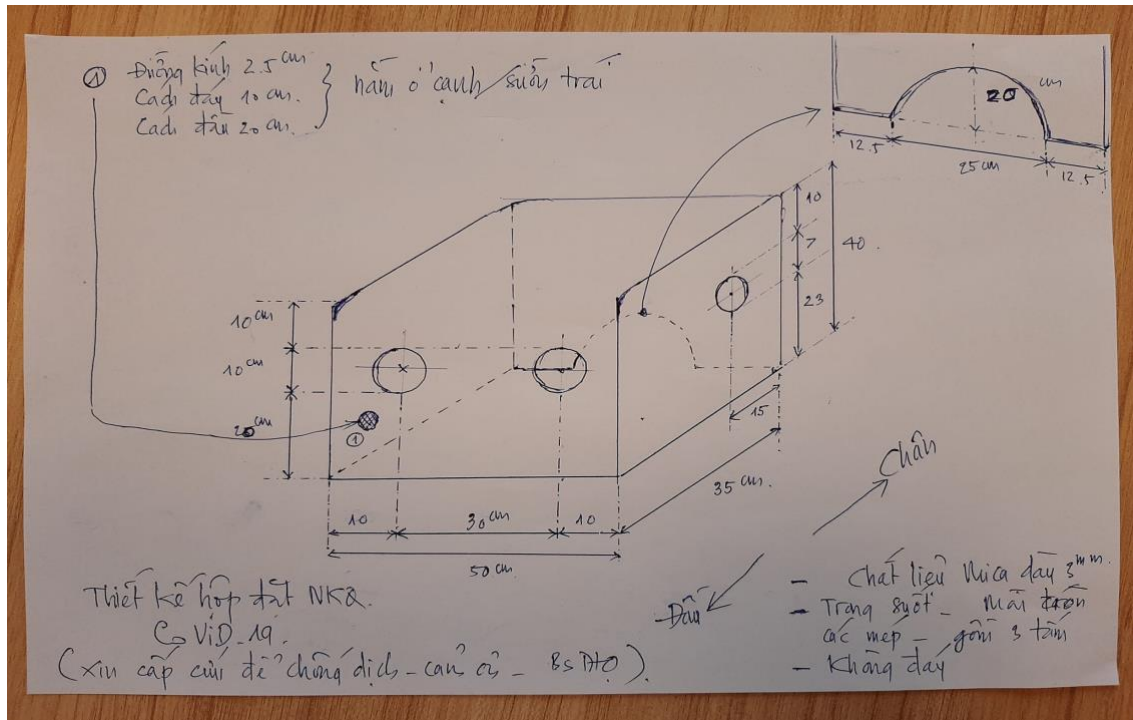 ① Đường kính 2.5 cm
Cách đáy 10 cm.
Cách đầu 20 cm.
nằm ở cạnh/sườn trái
20 cm
12.5
25 cm
12.5
10
7
40
23
10 cm
10 cm
20 cm
①
15
35 cm.
10
30 cm
10
50 cm
Chân
Đầu
Thiết kế hộp đặt NKQ.
CoViD_19.
(Xin cấp cứu để chống dịch - cảm ơn - Bs
- Chất liệu Mica dày 3mm.
- Trong suốt - Mài tròn
các mép - gồm 3 tấm
- Không đáy